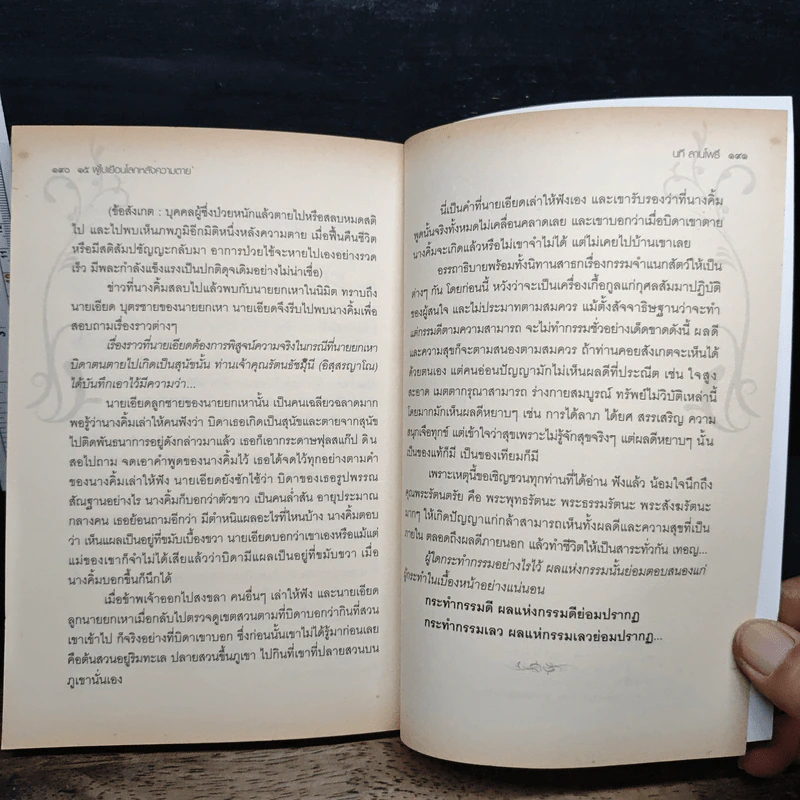 ๑๙๐ ๑๕ ผู้ไปเยือนโลกหลังความตาย
(ข้อสังเกต : บุคคลผู้ซึ่งป่วยหนักแล้วตายไปหรือสลบหมดสติ
ไป และไปพบเห็นภพภูมิอีกมิติหนึ่งหลังความตาย เมื่อฟื้นคืนชีวิต
หรือมีสติสัมปชัญญะกลับมา อาการป่วยไข้จะหายไปเองอย่างรวด
เร็ว มีพละกำลังแข็งแรงเป็นปกติดุจเดิมอย่างไม่น่าเชื่อ)
ข่าวที่นางคิ้มสลบไปแล้วพบกับนายยกเหาในนิมิต ทราบถึง
นายเอียด บุตรชายของนายยกเหา นายเอียดจึงรีบไปพบนางคิ้มเพื่อ
สอบถามเรื่องราวต่างๆ
เรื่องราวที่นายเอียดต้องการพิสูจน์ความจริงในกรณีที่นายยกเหา
บิดาตนตายไปเกิดเป็นสุนัขนั้น ท่านเจ้าคุณรัตนธัชมุนี (อิสฺสรญาโณ)
ได้บันทึกเอาไว้มีความว่า...
นายเอียดลูกชายของนายยกเหานั้น เป็นคนเฉลียวฉลาดมาก
พอรู้ว่านางคิ้มเล่าให้คนฟังว่า บิดาเธอเกิดเป็นสุนัขและตายจากสุนัข
ไปติดพันธนาการอยู่ดังกล่าวมาแล้ว เธอก็เอากระดาษฟุลสแก๊ป ดิน
สอไปถาม จดเอาคำพูดของนางคิ้มไว้ เธอได้จดไว้ทุกอย่างตามคำ
ของนางคิ้มเล่าให้ฟัง นายเอียดยังซักไซ้ว่า บิดาของเธอรูปพรรณ
สัณฐานอย่างไร นางคิ้มก็บอกว่าตัวขาว เป็นคนล่ำสัน อายุประมาณ
กลางคน เธอย้อนถามอีกว่า มีตำหนิแผลอะไรที่ไหนบ้าง นางคิ้มตอบ
ว่า เห็นแผลเป็นอยู่ที่ขมับเบื้องขวา นายเอียดบอกว่าเขาเองหรือแม้แต่
แม่ของเขาก็จำไม่ได้เสียแล้วว่าบิดามีแผลเป็นอยู่ที่ขมับขวา เมื่อ
นางคิ้มบอกขึ้นก็นึกได้
เมื่อข้าพเจ้าออกไปสงขลา คนอื่นๆ เล่าให้ฟัง และนายเอียด
ลูกนายยกเหาเมื่อกลับไปตรวจดูเขตสวนตามที่บิดาบอกว่ากินที่สวน
เขาเข้าไป ก็จริงอย่างที่บิดาเขาบอก ซึ่งก่อนนั้นเขาไม่ได้รู้มาก่อนเลย
คือต้นสวนอยู่ริมทะเล ปลายสวนขึ้นภูเขา ไปกินที่เขาที่ปลายสวนบน
ภูเขานั่นเอง
นที ลานโพธิ์ ๑๙๑
นี่เป็นคำที่นายเอียดเล่าให้ฟังเอง และเขารับรองว่าที่นางคิ้ม
พูดนั้นจริงทั้งหมดไม่เคลื่อนคลาดเลย และเขาบอกว่าเมื่อบิดาเขาตาย
นางคิ้มจะเกิดแล้วหรือไม่เขาจำไม่ได้ แต่ไม่เคยไปบ้านเขาเลย
อรรถาธิบายพร้อมทั้งนิทานสาธกเรื่องกรรมจำแนกสัตว์ให้เป็น
ต่างๆ กัน โดยก่อนนี้ หวังว่าจะเป็นเครื่องเกื้อกูลแก่กุศลสัมมาปฏิบัติ
ของผู้สนใจ และไม่ประมาทตามสมควร แม้ตั้งสัจจาธิษฐานว่าจะทำ
แต่กรรมดีตามความสามารถ จะไม่ทำกรรมชั่วอย่างเด็ดขาดดังนี้ ผลดี
และความสุขก็จะตามสนองตามสมควร ถ้าท่านคอยสังเกตจะเห็นได้
ด้วยตนเอง แต่คนอ่อนปัญญามักไม่เห็นผลดีที่ประณีต เช่น ใจสูง
สะอาด เมตตากรุณาสามารถ ร่างกายสมบูรณ์ ทรัพย์ไม่วิบัติเหล่านี้
โดยมากมักเห็นผลดีหยาบๆ เช่น การได้ลาภ ได้ยศ สรรเสริญ ความ
สนุกเจือทุกข์ แต่เข้าใจว่าสุขเพราะไม่รู้จักสุขจริงๆ แต่ผลดีหยาบๆ นั้น
เป็นของแท้ก็มี เป็นของเทียมก็มี
เพราะเหตุนี้ขอเชิญชวนทุกท่านที่ได้อ่าน ฟังแล้ว น้อมใจนึกถึง
คุณพระรัตนตรัย คือ พระพุทธรัตนะ พระธรรมรัตนะ พระสังฆรัตนะ
มากๆ ให้เกิดปัญญาแก่กล้าสามารถเห็นทั้งผลดีและความสุขที่เป็น
ภายใน ตลอดถึงผลดีภายนอก แล้วทำชีวิตให้เป็นสาระทั่วกัน เทอญ...
ผู้ใดกระทำกรรมอย่างไรไว้ ผลแห่งกรรมนั้นย่อมตอบสนองแก่
ผู้กระทำในเบื้องหน้าอย่างแน่นอน
กระทำกรรมดี ผลแห่งกรรมดีย่อมปรากฏ
กระทำกรรมเลว ผลแห่งกรรมเลวย่อมปรากฏ...